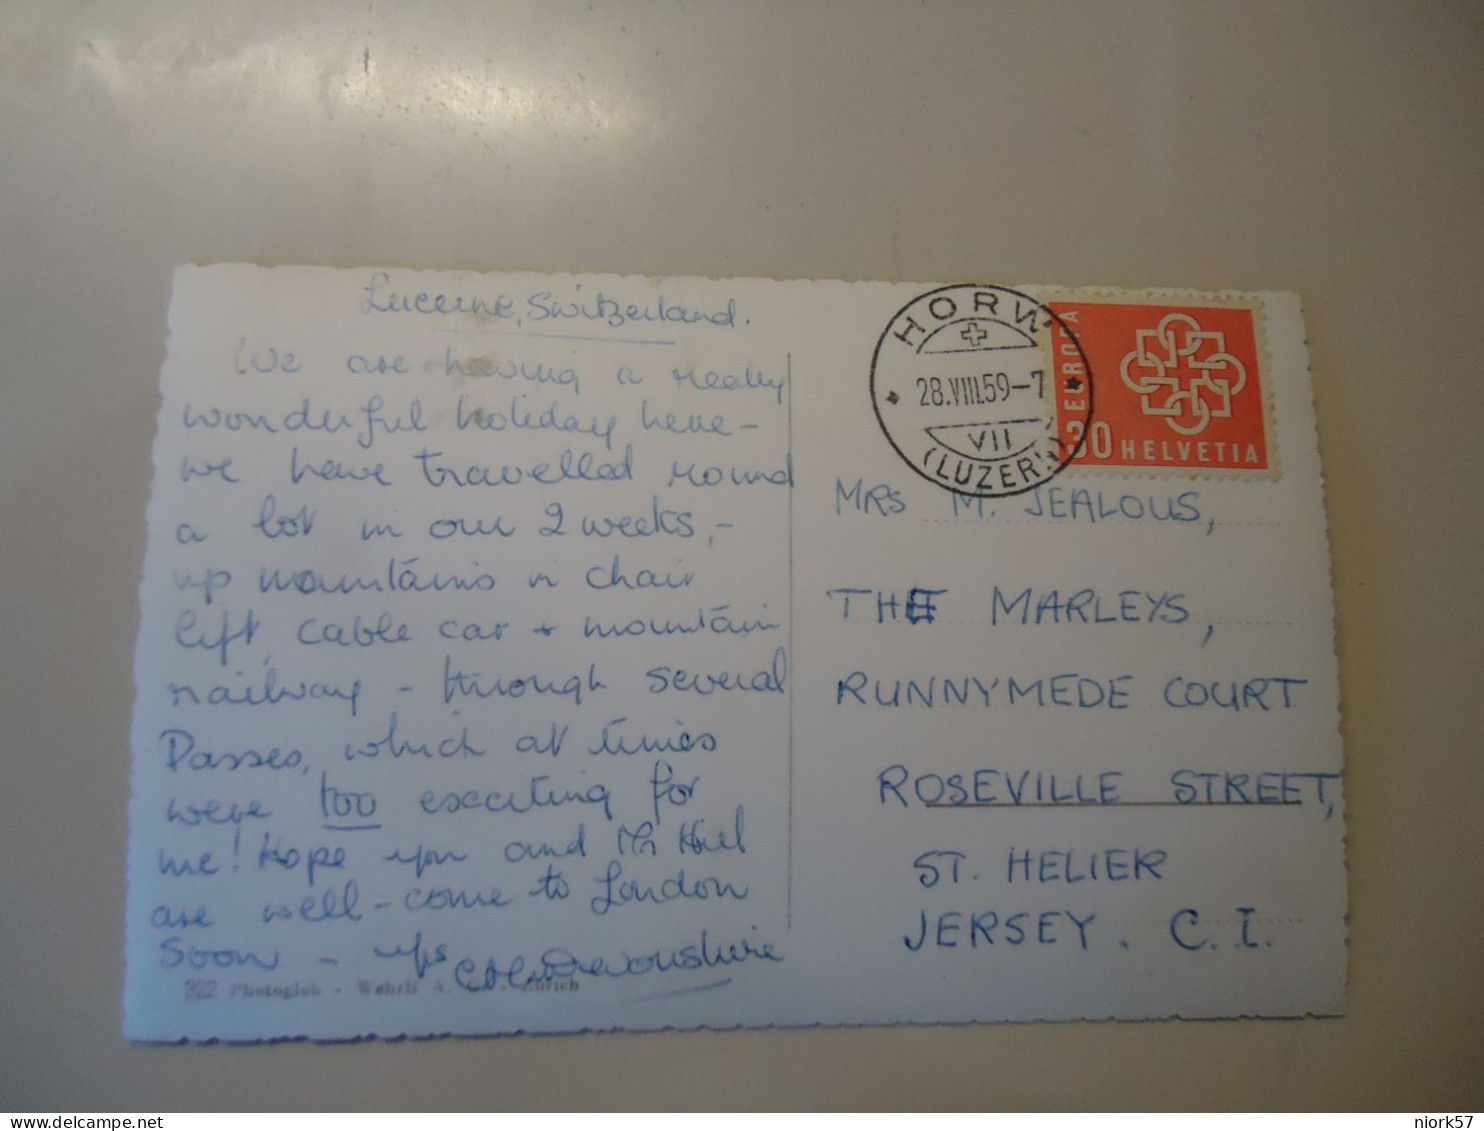 Lucerne, Switzerland.
We are having a really
wonderful holiday here -
we have travelled round
a lot in our 2 weeks, -
up mountains in chair
lift, cable car + mountain
railway - through several
Passes, which at times
were too exciting for
me! Hope you and Mr
are well - come to London
soon - yrs
Devonshire
322 Photoglob - Wehrli A. - Zürich
HORW
28.VIII.59-7
VII
(LUZERN)
EUROPA
30 HELVETIA
MRS M. JEALOUS,
THE MARLEYS,
RUNNYMEDE COURT
ROSEVILLE STREET,
ST. HELIER
JERSEY. C.I.
niork57